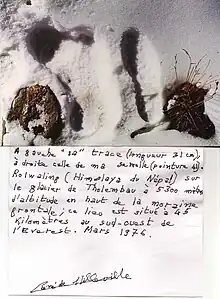 A gauche "sa" trace (longueur 31 cm),
à droite celle de ma semelle (pointure 41).
Rolwaling (Himalaya du Népal) sur
le glacier de Thelembau à 5300 mètres
d'altitude en haut de la moraine
frontale; ce lieu est situé à 45
kilomètres au sud-ouest de
l'Everest. Mars 1976.